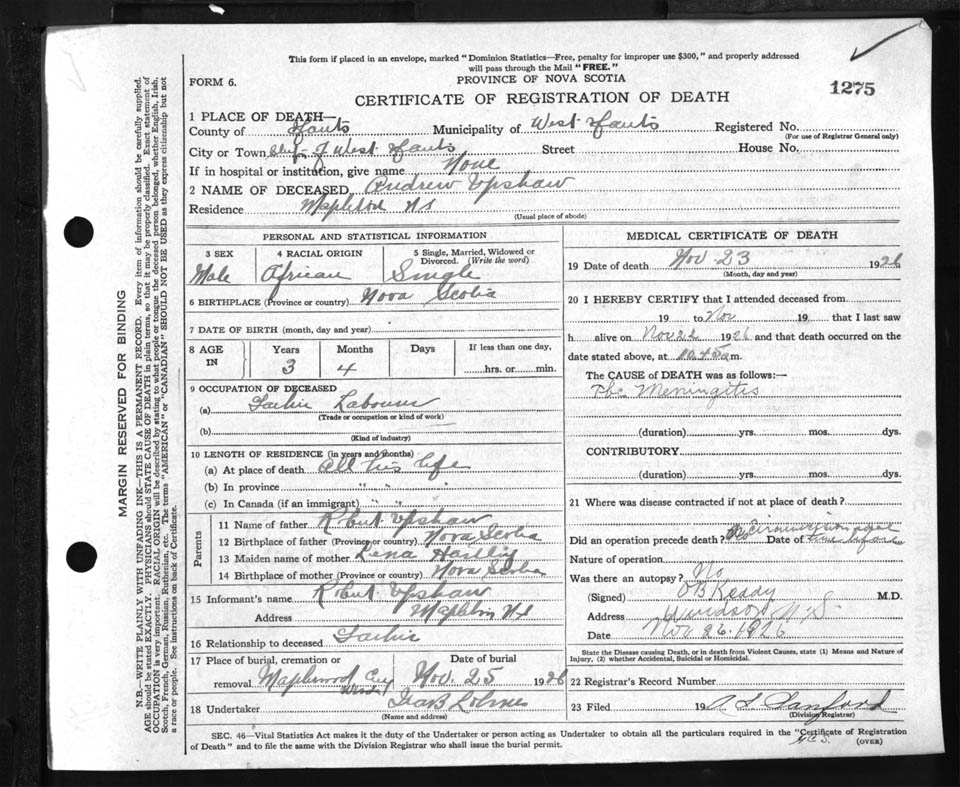 This form if placed in an envelope, marked "Dominion Statistics—Free, penalty for improper use $300," and properly addressed
will pass through the Mail "FREE."
FORM 6.
PROVINCE OF NOVA SCOTIA
1275
CERTIFICATE OF REGISTRATION OF DEATH
1 PLACE OF DEATH—
County of Hants Municipality of West Hants Registered No.
(For use of Registrar General only)
City or Town of West Hants Street House No.
If in hospital or institution, give name None
2 NAME OF DECEASED Andrew Upshaw
Residence N S
(Usual place of abode)
PERSONAL AND STATISTICAL INFORMATION
3 SEX 4 RACIAL ORIGIN 5 Single, Married, Widowed or
Divorced. (Write the word)
Male African Single
6 BIRTHPLACE (Province or country) Nova Scotia
7 DATE OF BIRTH (month, day and year)
8 AGE IN Years Months Days If less than one day,
3 4 hrs. or min.
9 OCCUPATION OF DECEASED
(a) Labourer
(Trade or occupation or kind of work)
(b)
(Kind of industry)
10 LENGTH OF RESIDENCE (in years and months)
(a) At place of death all his life
(b) In province " " "
(c) In Canada (if an immigrant) " "
Parents
11 Name of father Robert Upshaw
12 Birthplace of father (Province or country) Nova Scotia
13 Maiden name of mother Lena
14 Birthplace of mother (Province or country) Nova Scotia
15 Informant's name Robert Upshaw
Address N S
16 Relationship to deceased
17 Place of burial, cremation or
removal Maplewood Cem Date of burial Nov. 25 1926
18 Undertaker
(Name and address)
MEDICAL CERTIFICATE OF DEATH
19 Date of death Nov 23 1926
(Month, day and year)
20 I HEREBY CERTIFY that I attended deceased from
19 to Nov 19 that I last saw
h alive on Nov 22 1926 and that death occurred on the
date stated above, at 10.45 a m.
The CAUSE of DEATH was as follows:—
Tbc Meningitis
(duration) yrs. mos. dys.
CONTRIBUTORY
(duration) yrs. mos. dys.
21 Where was disease contracted if not at place of death?
Did an operation precede death? Date of
Nature of operation
Was there an autopsy? No
(Signed) O B Keddy M.D.
Address Windsor N.S.
Date Nov 26. 1926
State the Disease causing Death, or in death from Violent Causes, state (1) Means and Nature of
Injury, (2) whether Accidental, Suicidal or Homicidal.
22 Registrar's Record Number
23 Filed 19 Sanford
(Division Registrar)
SEC. 46—Vital Statistics Act makes it the duty of the Undertaker or person acting as Undertaker to obtain all the particulars required in the "Certificate of Registration
of Death" and to file the same with the Division Registrar who shall issue the burial permit.
(OVER)
MARGIN RESERVED FOR BINDING
N.B.—WRITE PLAINLY WITH UNFADING INK—THIS IS A PERMANENT RECORD. Every item of information should be carefully supplied.
AGE should be stated EXACTLY. PHYSICIANS should STATE CAUSE OF DEATH in plain terms, so that it may be properly classified. Exact statement of
OCCUPATION is very important. RACIAL ORIGIN will be described by stating to what people or tongue the deceased person belonged, whether English, Irish,
Scotch, French, German, Russian, Ruthenian, etc. The terms "AMERICAN" or "CANADIAN" SHOULD NOT BE USED as they express citizenship but not
a race or people. See instructions on back of Certificate.